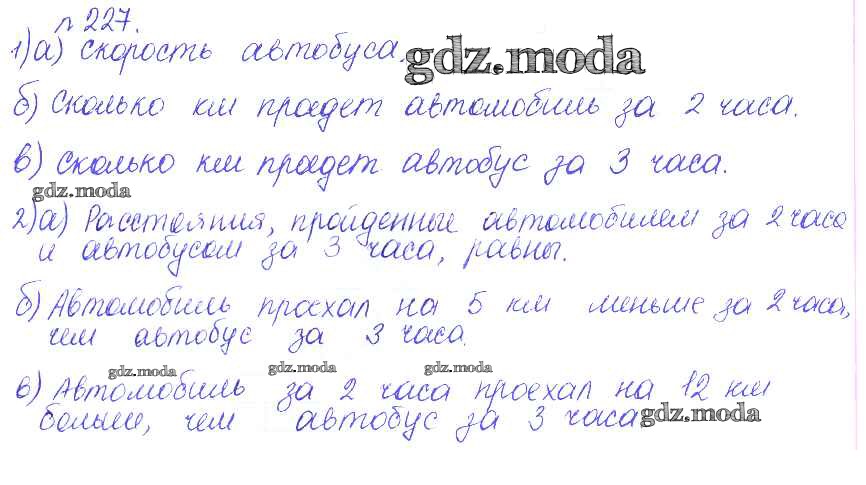 № 227.
1) а) Скорость автобуса. gdz.moda
б) Сколько км пройдет автомобиль за 2 часа.
в) Сколько км пройдет автобус за 3 часа.
gdz.moda
2) а) Расстояния, пройденные автомобилем за 2 часа
и автобусом за 3 часа, равны.
б) Автомобиль проехал на 5 км меньше за 2 часа,
чем автобус за 3 часа.
gdz.moda gdz.moda gdz.moda
в) Автомобиль за 2 часа проехал на 12 км
больше, чем автобус за 3 часа gdz.moda